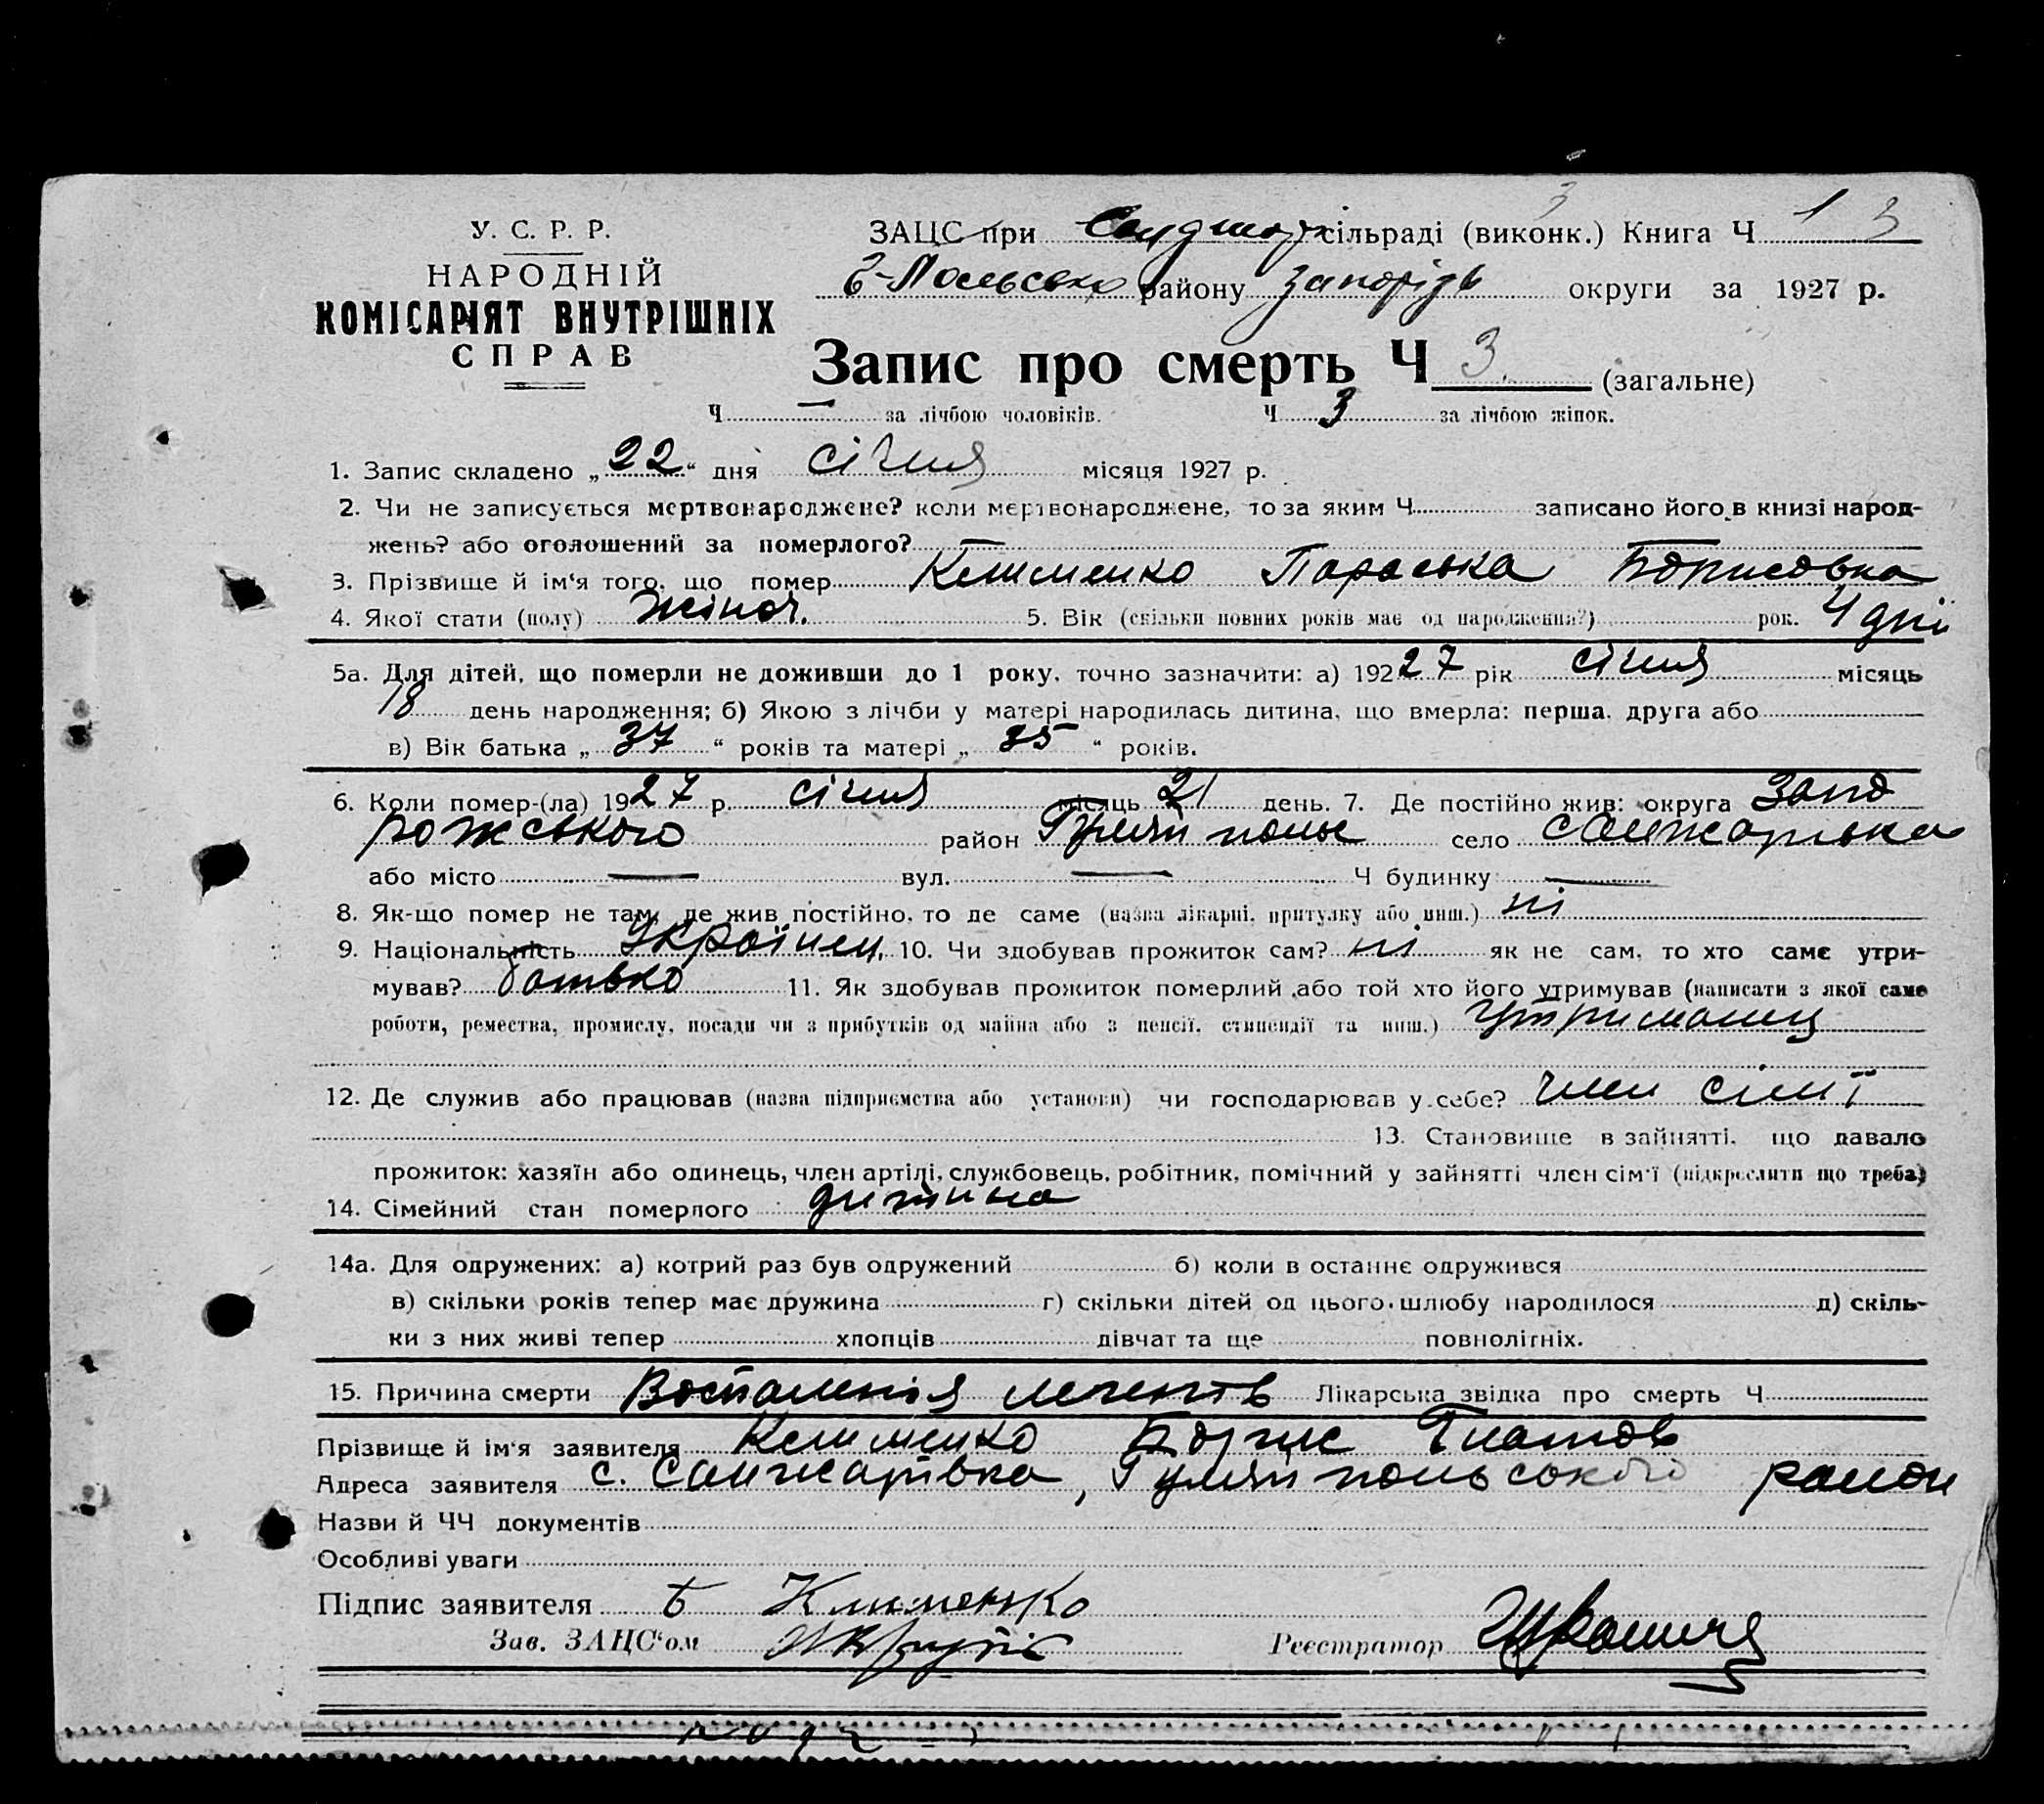 У. С. Р. Р.
НАРОДНІЙ
КОМІСАРІЯТ ВНУТРІШНІХ
СПРАВ
ЗАЦС при сільраді (виконк.) Книга Ч 1 3
Г-Польсько району Запорізь округи за 1927 р.
Запис про смерть Ч 3 (загальне)
Ч — за лічбою чоловіків. Ч 3 за лічбою жінок.
1. Запис складено „22“ дня січня місяця 1927 р.
2. Чи не записується мертвонароджене? коли мертвонароджене, то за яким Ч записано його в книзі народ-
жень? або оголошений за померлого? —
3. Прізвище й ім‘я того, що помер Клименко Параська Борисовна
4. Якої стати (полу) жіноч. 5. Вік (скільки повних років має од народження?) рок. 4 дні
5а. Для дітей, що померли не доживши до 1 року, точно зазначити: а) 192 27 рік січня місяць
18 день народження; б) Якою з лічби у матері народилась дитина, що вмерла: перша, друга або
в) Вік батька „37“ років та матері „35“ років.
6. Коли помер-(ла) 1927 р. січня місяць 21 день. 7. Де постійно жив: округа Запо
рожського район Гуляй поле село Санжарівка
або місто — вул. — Ч будинку —
8. Як-що помер не там, де жив постійно, то де саме (назва лікарні, притулку або инш.) ні
9. Національність Українец. 10. Чи здобував прожиток сам? ні як не сам, то хто саме утри-
мував? батько 11. Як здобував прожиток померлий або той хто його утримував (написати з якої саме
роботи, ремества, промислу, посади чи з прибутків од майна або з пенсії, стипендії та инш.) Утриманец
12. Де служив або працював (назва підприємства або установи) чи господарював у себе? член сімї
13. Становище в зайнятті, що давало
прожиток: хазяїн або одинець, член артілі, службовець, робітник, помічний у зайнятті член сім‘ї (підкреслити що треба)
14. Сімейний стан померлого дитина
14а. Для одружених: а) котрий раз був одружений б) коли в останнє одружився
в) скільки років тепер має дружина г) скільки дітей од цього шлюбу народилося д) скіль-
ки з них живі тепер хлопців дівчат та ще повнолітніх.
15. Причина смерти Воспаленія Лікарська звідка про смерть Ч
Прізвище й ім‘я заявителя Клименко Борис Платов
Адреса заявителя с. Санжарівка, Гуляйпольського район
Назви й ЧЧ документів
Особливі уваги
Підпис заявителя Б Клименко
Зав. ЗАЦС‘ом Реєстратор